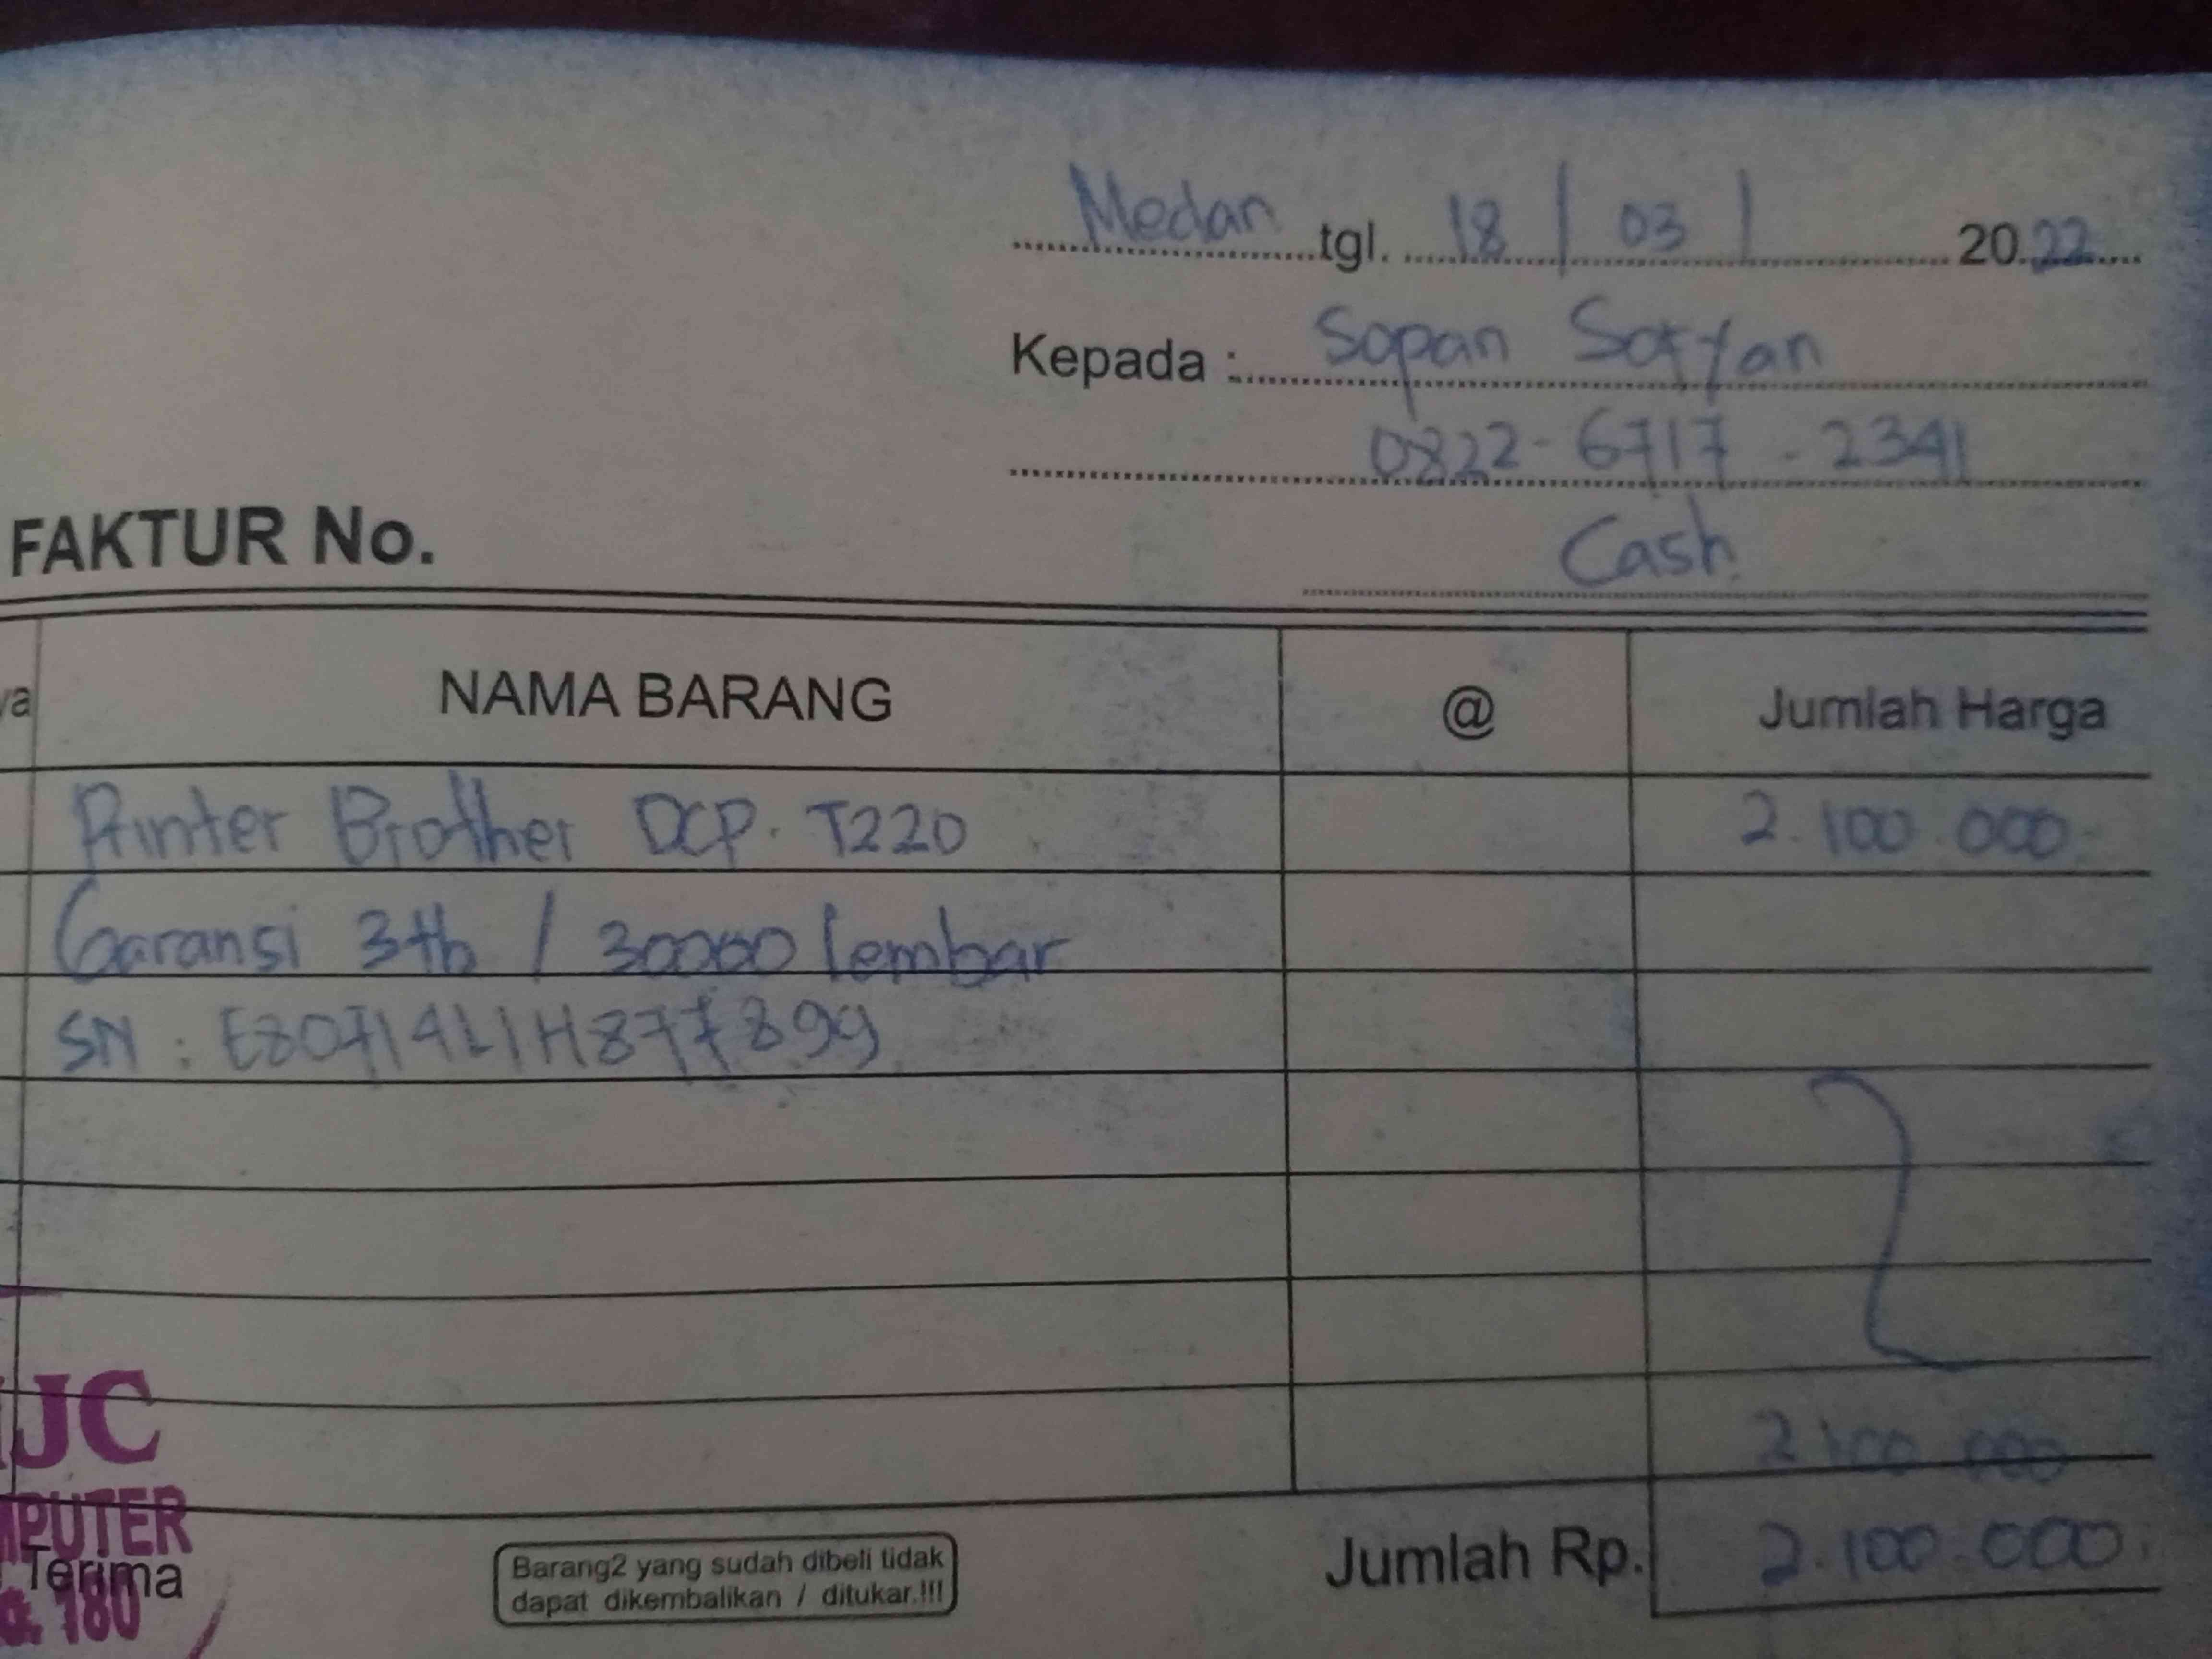 Medan tgl. 18 / 03 / 2022
Kepada : Sopan Sofyan
0822-6717-2341
FAKTUR No.
Cash
ya NAMA BARANG @ Jumlah Harga
Printer Brother DCP. T220 2.100.000
Garansi 3th / 30000 lembar
SN : E80714L1H877899
2 100 000
JC
MPUTER
Terima
180
Barang2 yang sudah dibeli tidak
dapat dikembalikan / ditukar.!!!
Jumlah Rp. 2.100.000